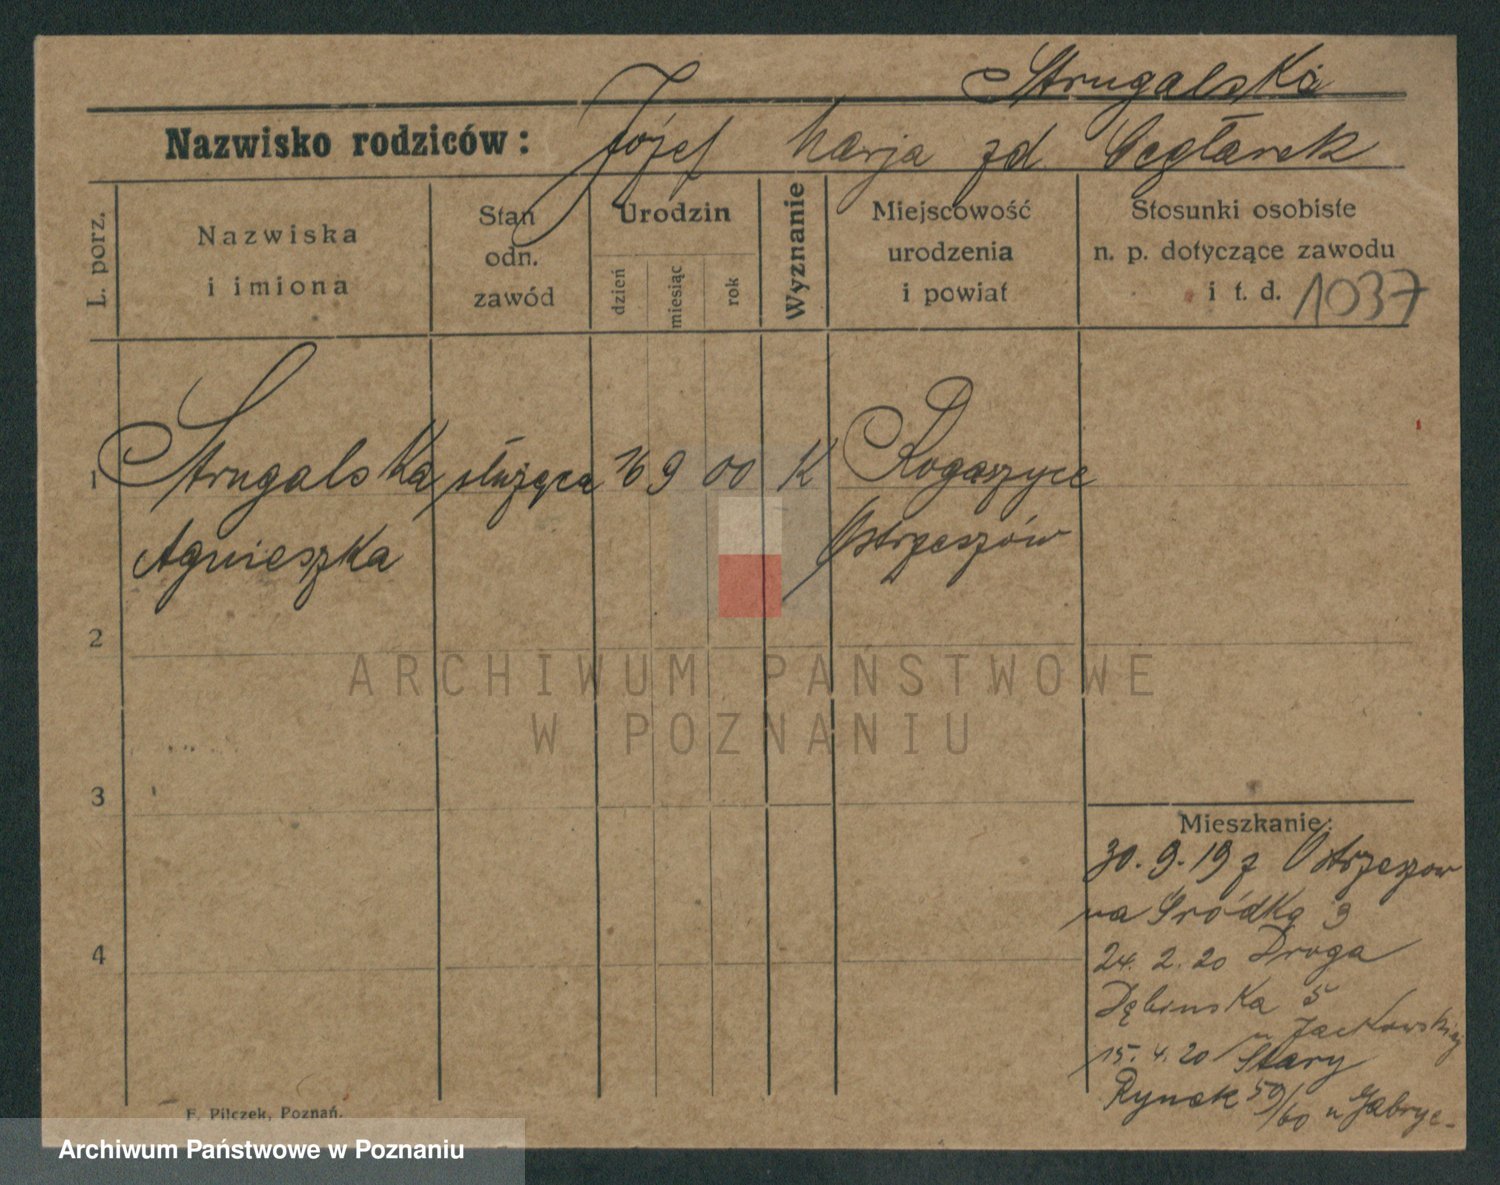 Strugalska
Nazwisko rodziców: Józef Marja zd Ceglarek
L. porz.
Nazwiska
i imiona
Stan
odn.
zawód
Urodzin
dzień
miesiąc
rok
Wyznanie
Miejscowość
urodzenia
i powiat
Stosunki osobiste
n. p. dotyczące zawodu
i t. d. 1037
1 Strugalska służąca 16 9 00 K Rogaszyce
Agnieszka Ostrzeszów
2
ARCHIWUM PAŃSTWOWE
W POZNANIU
3
Mieszkanie:
30.9.19 z Ostrzeszow
na Sródką 3
4
24. 2. 20 Droga
Dębinska 5
u Jackowskiej
15. 4. 20 Stary
Rynek 59/60 u Gabrye-
F. Pilczek, Poznań.
Archiwum Państwowe w Poznaniu